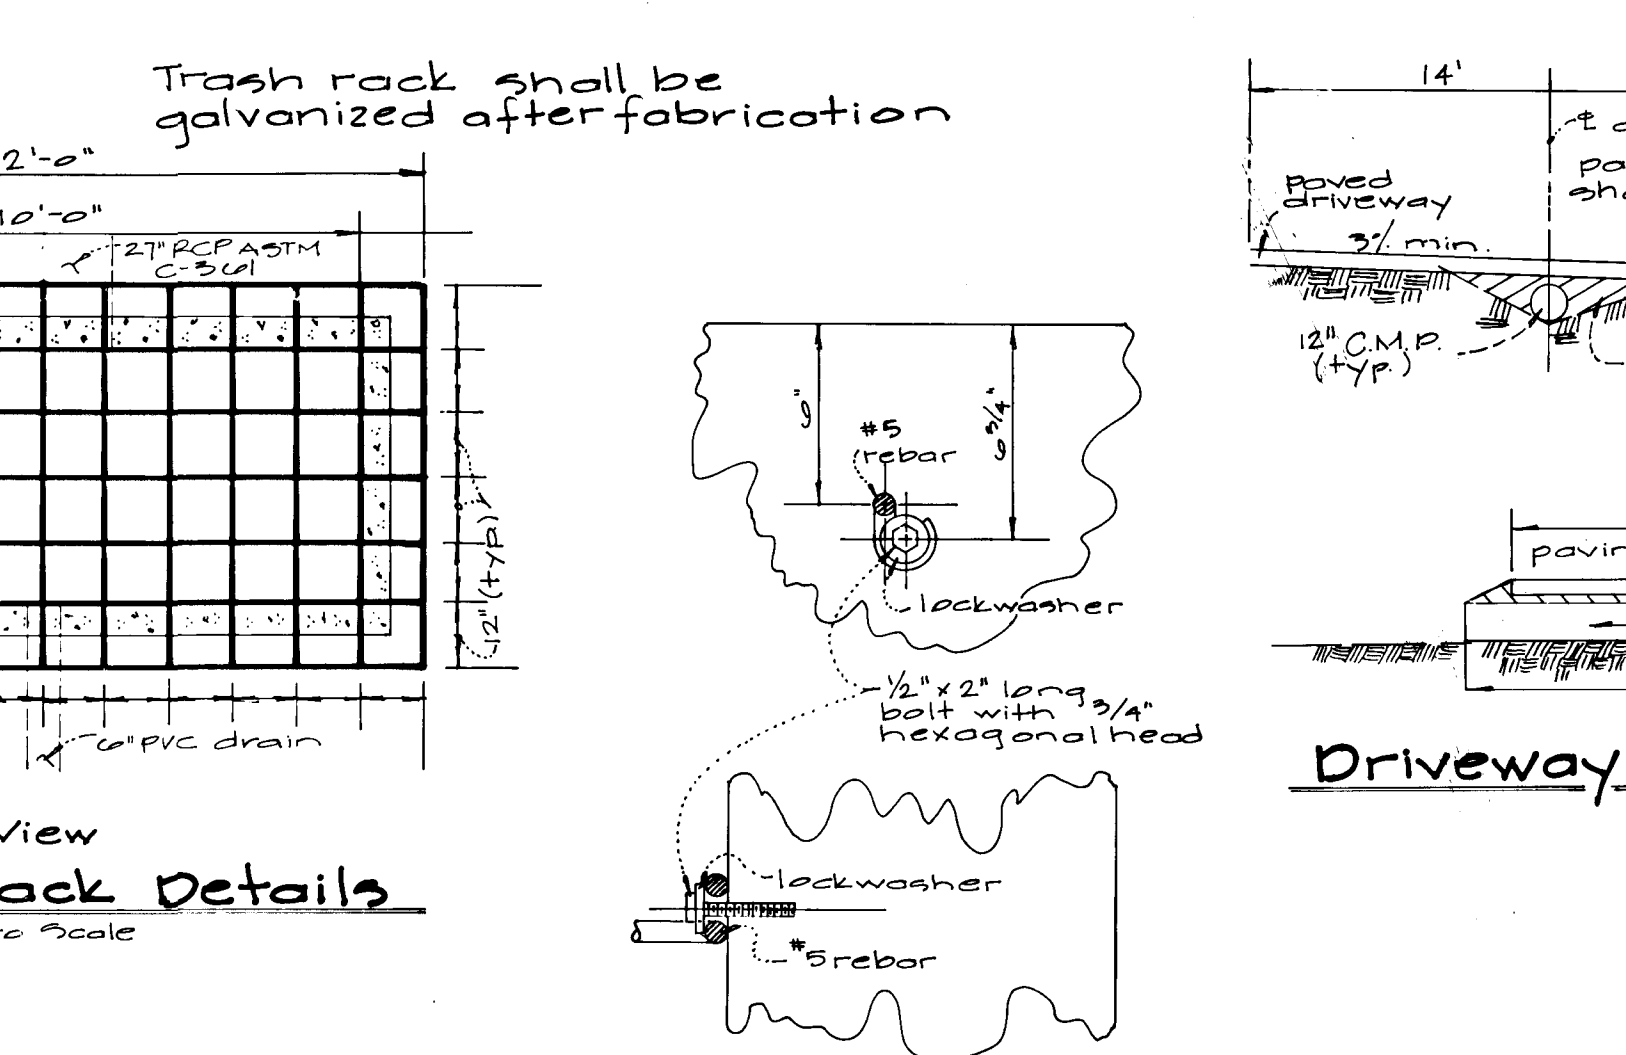 Trash rack shall be
galvanized after fabrication
2'-0"
10'-0"
27" RCP ASTM
C-361
12" (typ)
6" PVC drain
View
ack Details
to Scale
6"
6 3/4"
#5
rebar
lockwasher
1/2" x 2" long
bolt with 3/4"
hexagonal head
lockwasher
#5 rebar
14'
℄
paved
driveway
3% min.
12" C.M.P.
(typ.)
pa
sh
pavin
Driveway